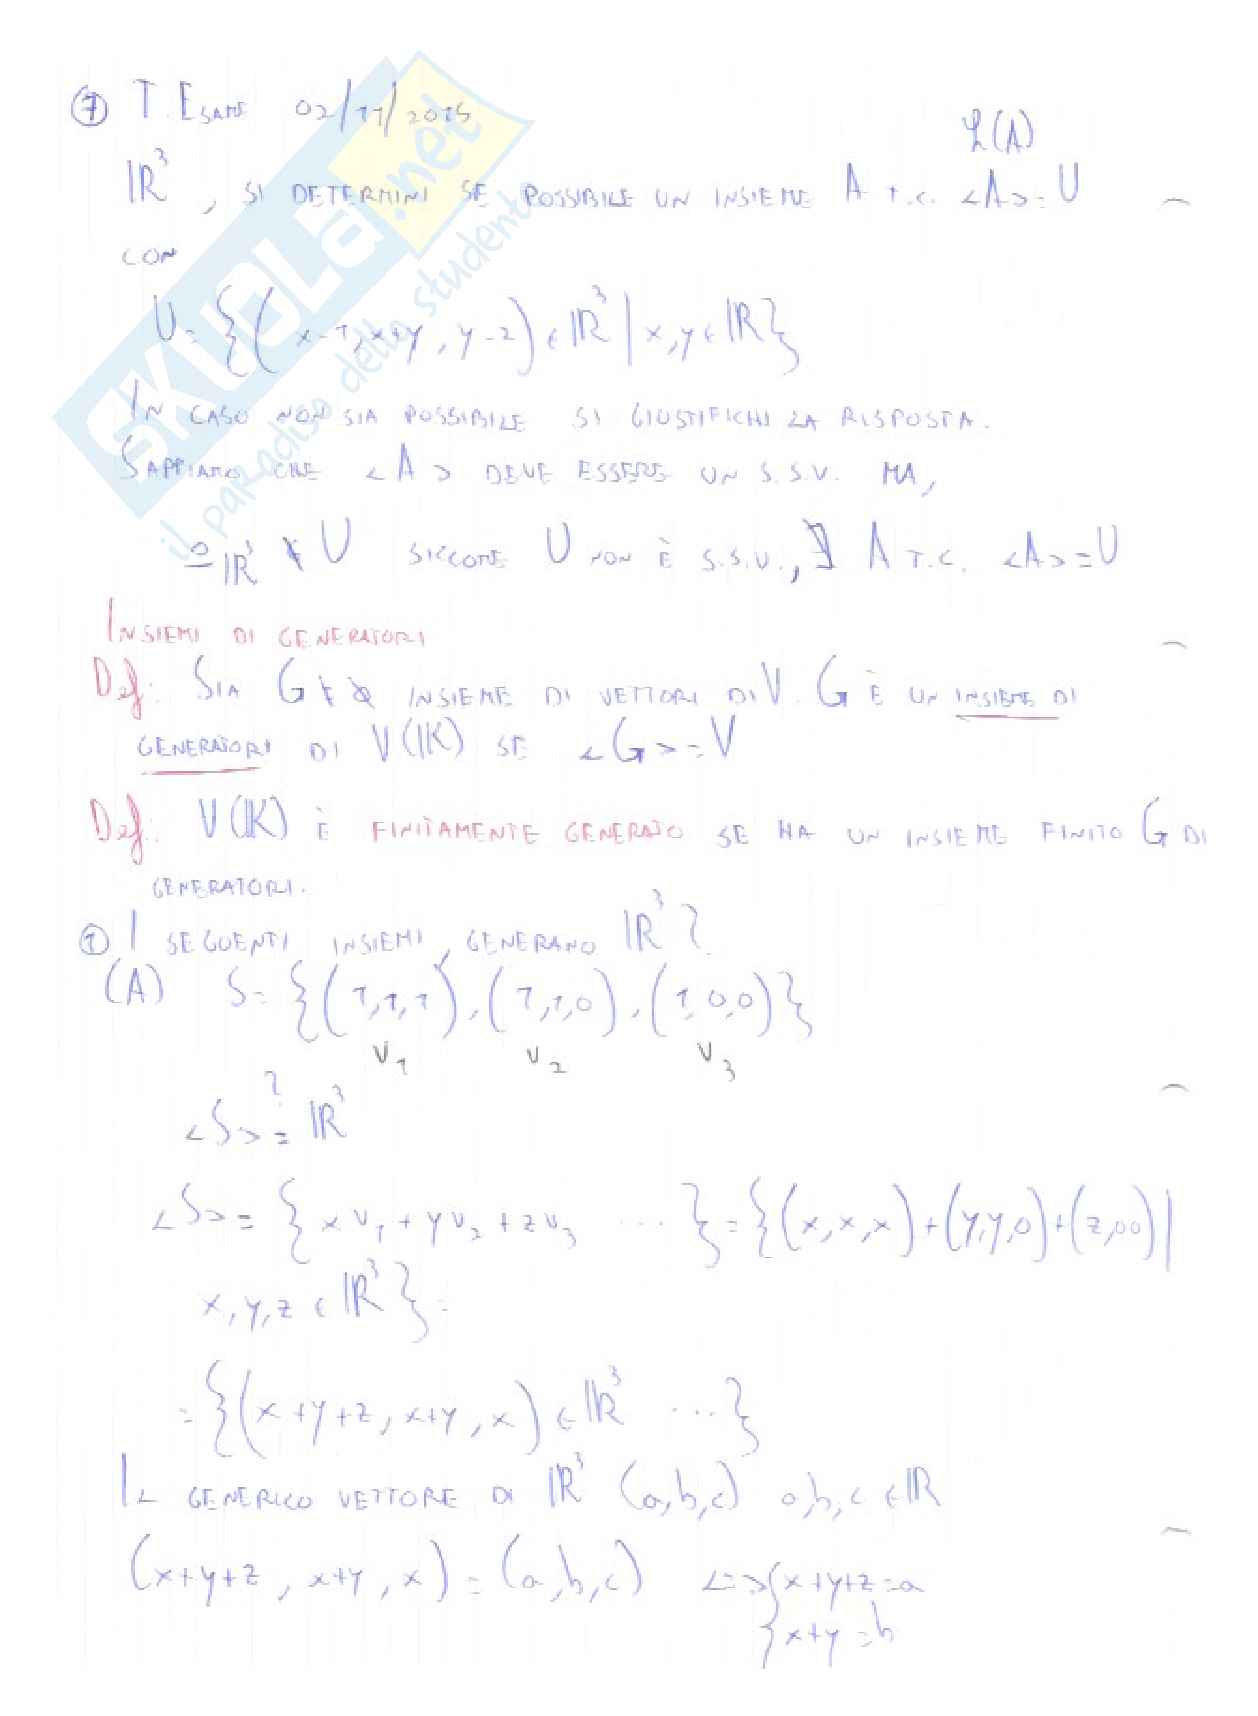 ⑦ T. ESAME 02/11/2015
L(A)
ℝ³, SI DETERMINI SE POSSIBILE UN INSIEME A T.C. <A>=U
CON
U={(x-1, x+y, y-2)∈ℝ³ | x,y∈ℝ}
IN CASO NON SIA POSSIBILE SI GIUSTIFICHI LA RISPOSTA.
SAPPIAMO CHE <A> DEVE ESSERE UN S.S.V. MA,
0_ℝ³ ∉ U SICCOME U NON È S.S.V., ∄ A T.C. <A>=U
INSIEMI DI GENERATORI
Def: SIA G≠∅ INSIEME DI VETTORI DI V. G È UN INSIEME DI
GENERATORI DI V(K) SE <G>=V
Def: V(K) È FINITAMENTE GENERATO SE HA UN INSIEME FINITO G DI
GENERATORI.
① I SEGUENTI INSIEMI, GENERANO ℝ³?
(A) S={(1,1,1), (1,1,0), (1,0,0)}
v₁ v₂ v₃
?
<S>=ℝ³
<S>={xv₁+yv₂+zv₃ ...}={(x,x,x)+(y,y,0)+(z,00)|
x,y,z∈ℝ³}=
={(x+y+z, x+y, x)∈ℝ³ ...}
IL GENERICO VETTORE DI ℝ³ (a,b,c) a,b,c∈ℝ
(x+y+z, x+y, x)=(a,b,c) <=>{x+y+z=a
{x+y=b
SKUOLA.net
il paradiso dello studente